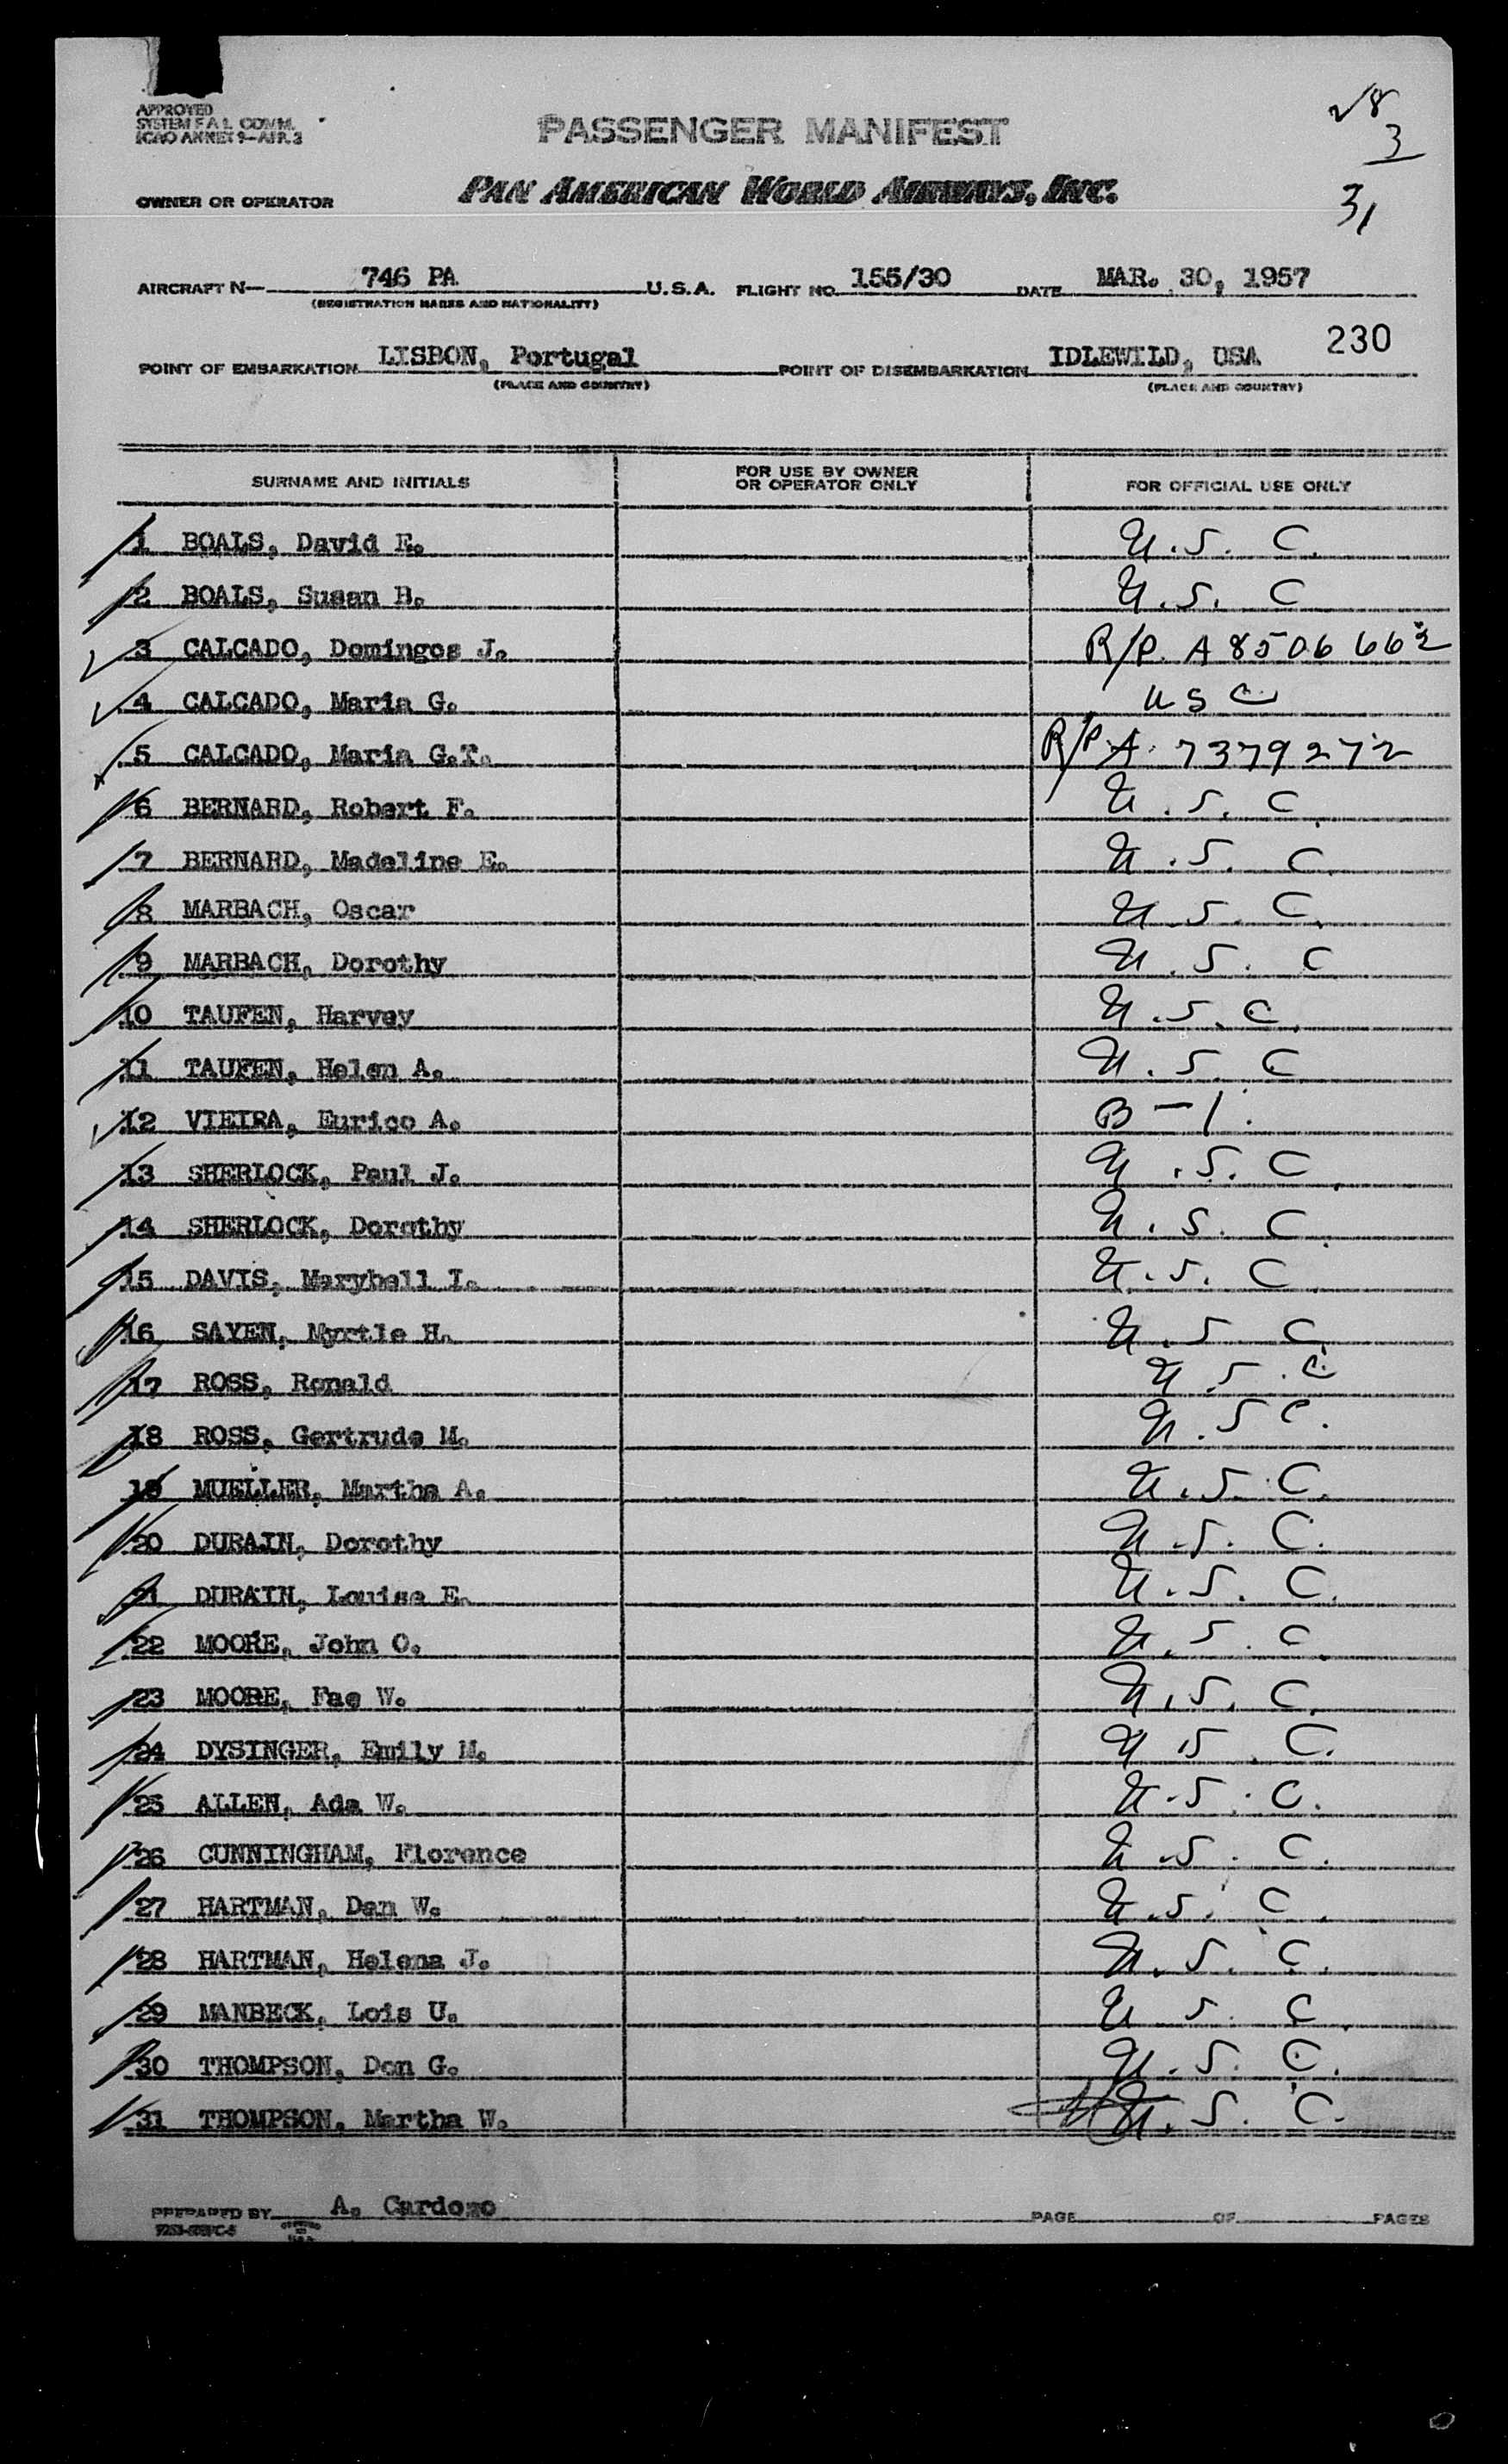 APPROVED
SYSTEM F.A.L. COMM.
ICAO ANNEX 9—AIR.3
28
3
31
PASSENGER MANIFEST
OWNER OR OPERATOR PAN AMERICAN WORLD AIRWAYS, INC.
AIRCRAFT N— 746 PA U.S.A. FLIGHT NO. 155/30 DATE MAR. 30, 1957
(REGISTRATION MARKS AND NATIONALITY)
230
POINT OF EMBARKATION LISBON, Portugal POINT OF DISEMBARKATION IDLEWILD, USA
(PLACE AND COUNTRY) (PLACE AND COUNTRY)
SURNAME AND INITIALS FOR USE BY OWNER OR OPERATOR ONLY FOR OFFICIAL USE ONLY
1 BOALS, David E. U.S. C.
2 BOALS, Susan B. U.S. C
3 CALCADO, Domingos J. R/P. A 8506 662
4 CALCADO, Maria G. U S C
5 CALCADO, Maria G.T. R/P A 7379272
6 BERNARD, Robert F. U.S.C.
7 BERNARD, Madeline E. U.S. C.
8 MARBACH, Oscar U.S.C.
9 MARBACH, Dorothy U.S. C
10 TAUFEN, Harvey U.S.C.
11 TAUFEN, Helen A. U.S.C
12 VIEIRA, Eurico A. B-1.
13 SHERLOCK, Paul J. U.S.C.
14 SHERLOCK, Dorothy U.S. C.
15 DAVIS, Marybell I. U.S. C.
16 SAYEN, Myrtle H. U.S C.
17 ROSS, Ronald U.S.C
18 ROSS, Gertrude M. U.S C.
19 MUELLER, Martha A. U.S.C.
20 DURAIN, Dorothy U.S. C.
21 DURAIN, Louise E. U.S. C.
22 MOORE, John O. U.S.C.
23 MOORE, Fae W. U.S. C.
24 DYSINGER, Emily M. U.S.C.
25 ALLEN, Ada W. U.S.C.
26 CUNNINGHAM, Florence U.S.C.
27 HARTMAN, Dan W. U.S. C.
28 HARTMAN, Helena J. U.S. C.
29 MANBECK, Lois U. U S. C.
30 THOMPSON, Don G. U.S. C.
31 THOMPSON, Martha W. U.S. C.
PREPARED BY A. Cardozo PAGE OF PAGES